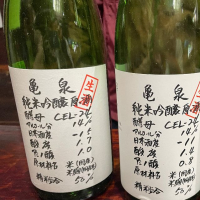 亀泉
生酒
純米吟醸原酒
酵母 CEL-24
アルコール分 14%
日本酒度 -15
酸度 1.7
アミノ酸
原材料名 米(国産)
米麹(国産米)
精米歩合 50%
亀泉
生酒
純米吟醸原酒
酵母 CEL-24
アルコール分 14%
日本酒度 -11
酸度 1.4
アミノ酸 0.8
原材料名 米(国産)
米麹(国産米)
精米歩合 50%